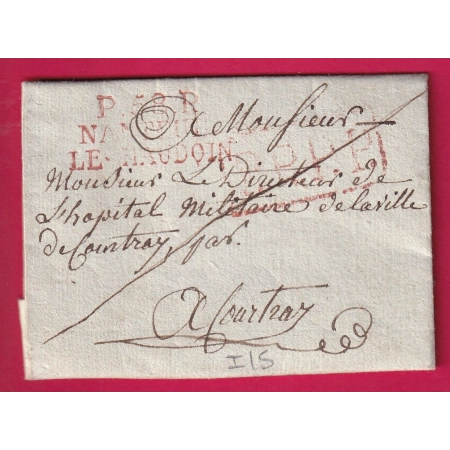 P.58.P
NAN
LE HAUDOIN
P.P.P.P
A Monsieur
Monsieur Le Directeur de
L'hopital Militaire de la ville
de Courtray par.
A Courtray
I/5